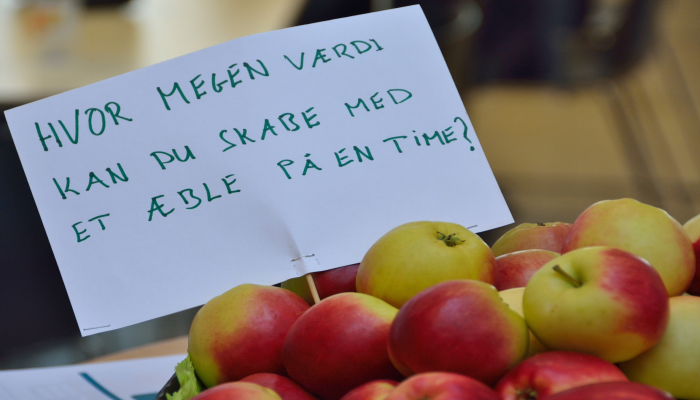 HVOR MEGEN VÆRDI
KAN DU SKABE MED
ET ÆBLE PÅ EN TIME?